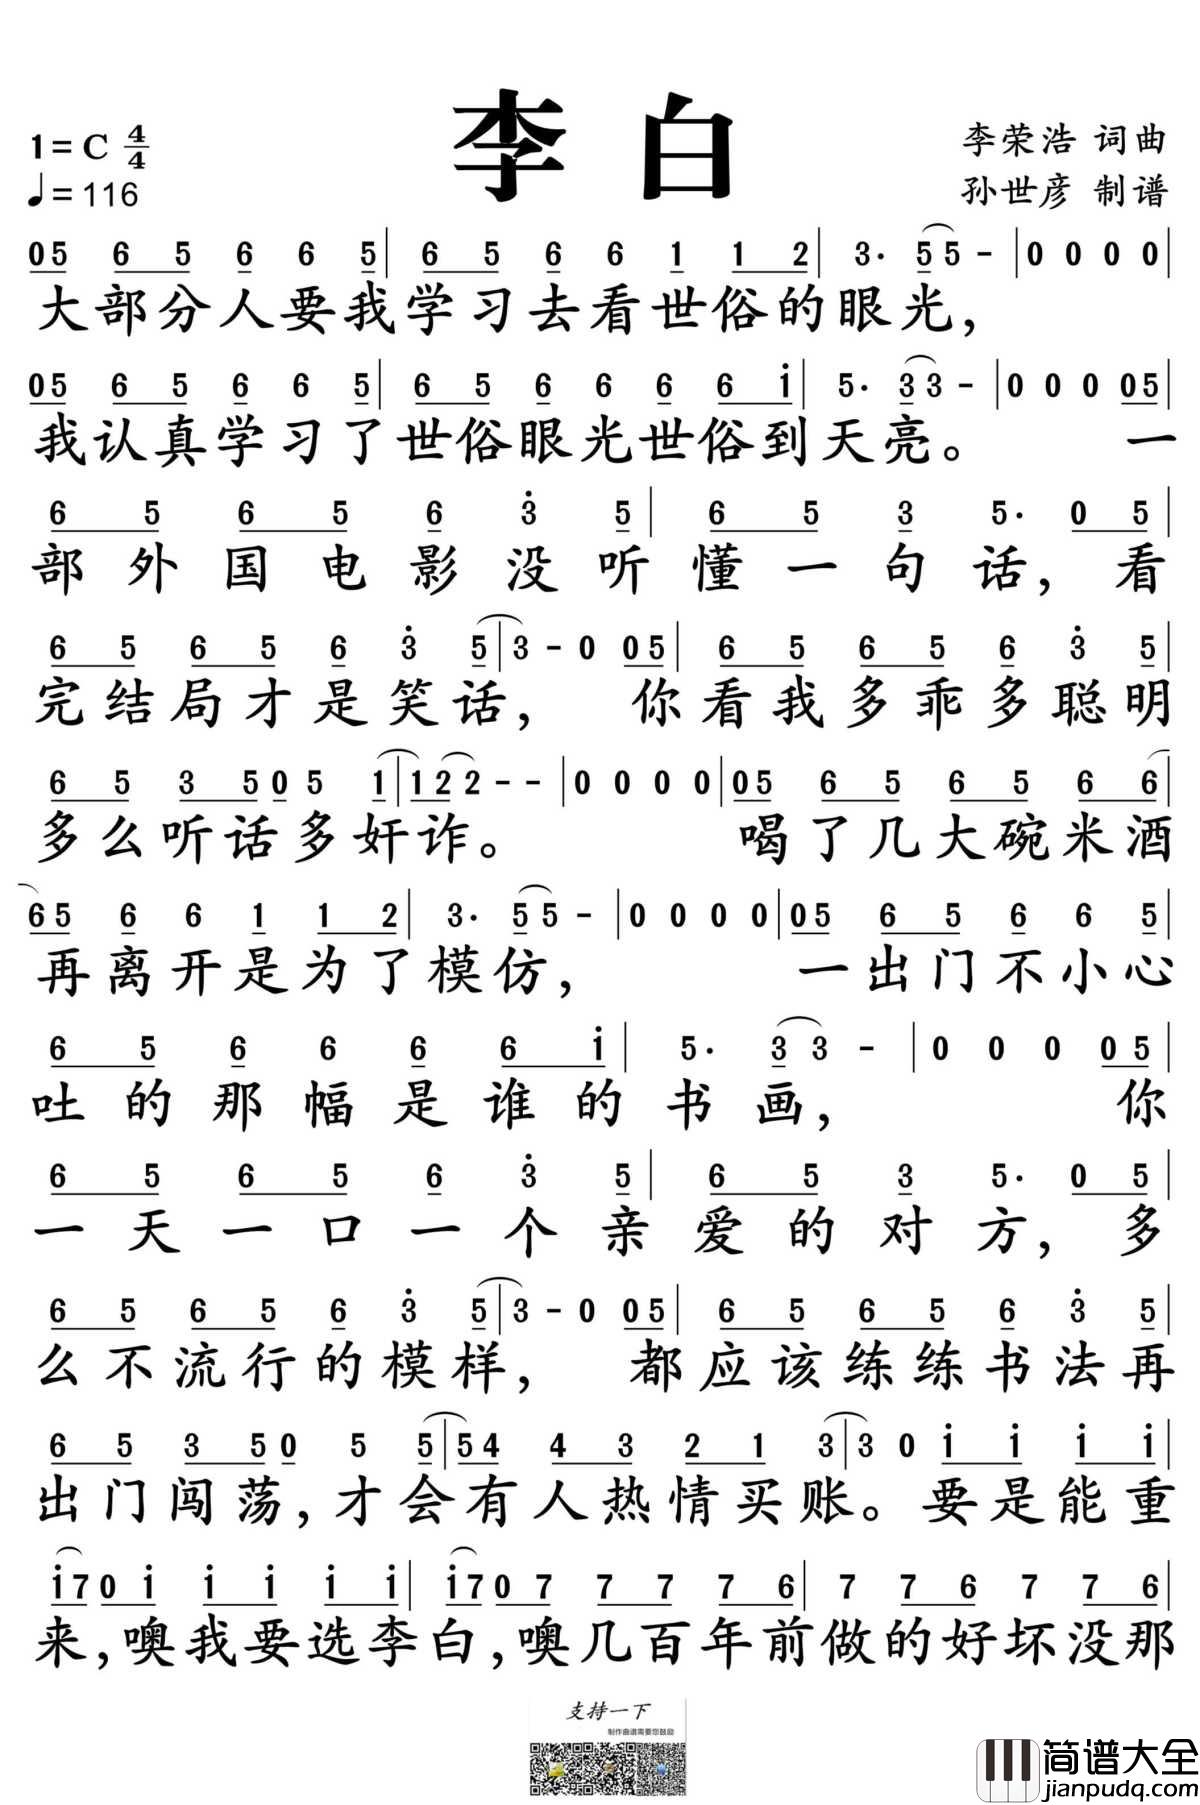 李白
1=C 4/4
♩=116
李荣浩 词曲
孙世彦 制谱
05 6 5 6 6 5 | 6 5 6 6 1 1 2 | 3· 5 5 - | 0 0 0 0 |
大部分人要我学习去看世俗的眼光，
05 6 5 6 6 5 | 6 5 6 6 6 6 i | 5· 3 3 - | 0 0 0 05 |
我认真学习了世俗眼光世俗到天亮。 一
6 5 6 5 6 3̇ 5 | 6 5 3 5· 0 5 |
部外国电影没听懂一句话，看
6 5 6 5 6 3̇ 5 | 3 - 0 05 | 6 5 6 5 6 3̇ 5 |
完结局才是笑话， 你看我多乖多聪明
6 5 3 5 0 5 1 | 1 2 2 - - | 0 0 0 0 | 05 6 5 6 5 6 6 |
多么听话多奸诈。 喝了几大碗米酒
6 5 6 6 1 1 2 | 3· 5 5 - | 0 0 0 0 | 05 6 5 6 6 5 |
再离开是为了模仿， 一出门不小心
6 5 6 6 6 6 i | 5· 3 3 - | 0 0 0 0 5 |
吐的那幅是谁的书画， 你
6 5 6 5 6 3̇ 5 | 6 5 3 5· 0 5 |
一天一口一个亲爱的对方，多
6 5 6 5 6 3̇ 5 | 3 - 0 05 | 6 5 6 5 6 3̇ 5 |
么不流行的模样， 都应该练练书法再
6 5 3 5 0 5 5 | 5 4 4 3 2 1 3 | 3 0 i i i i |
出门闯荡，才会有人热情买账。要是能重
i 7 0 i i i i i | i 7 0 7 7 7 7 6 | 7 7 6 7 7 6 |
来，噢我要选李白，噢几百年前做的好坏没那
支持一下
制作曲谱需要您鼓励
简谱大全
jianpudq.com